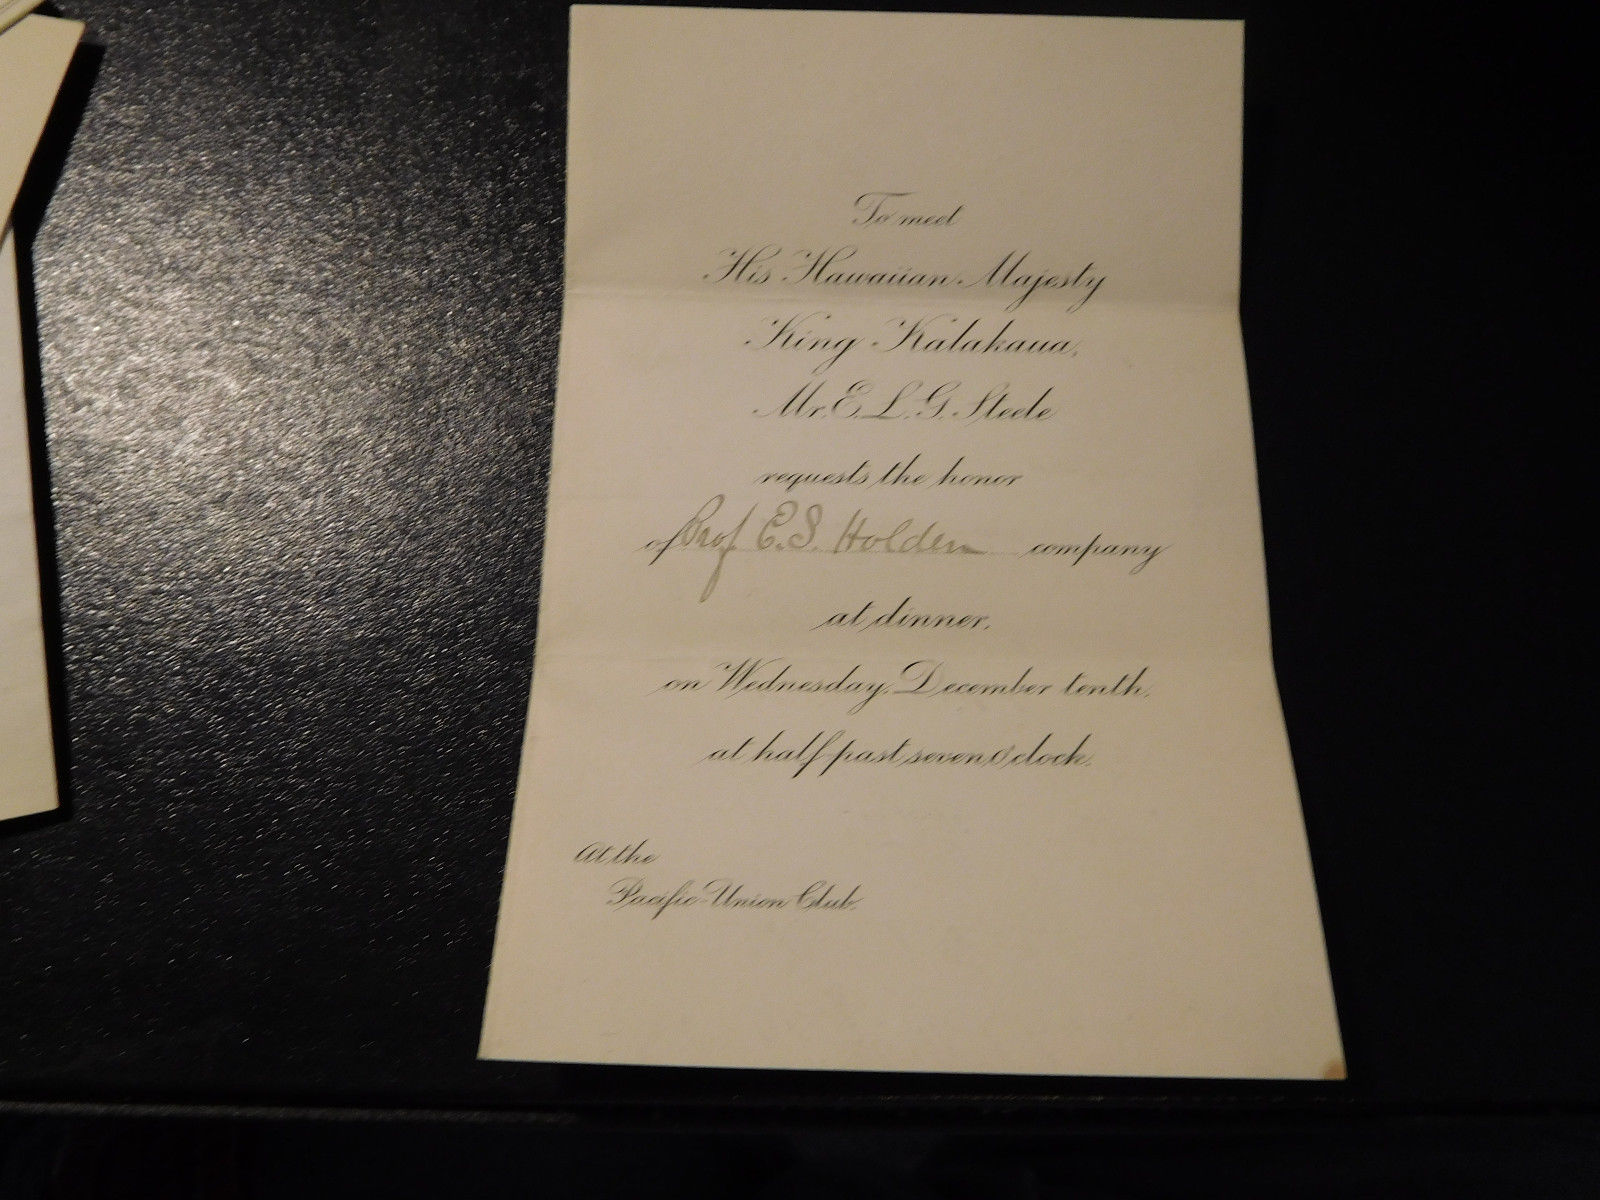 To meet
His Hawaiian Majesty
King Kalakaua,
Mr. E. L. G. Steele
requests the honor
of Prof. E. S. Holden company
at dinner,
on Wednesday, December tenth,
at half past seven o'clock.
At the
Pacific-Union Club.